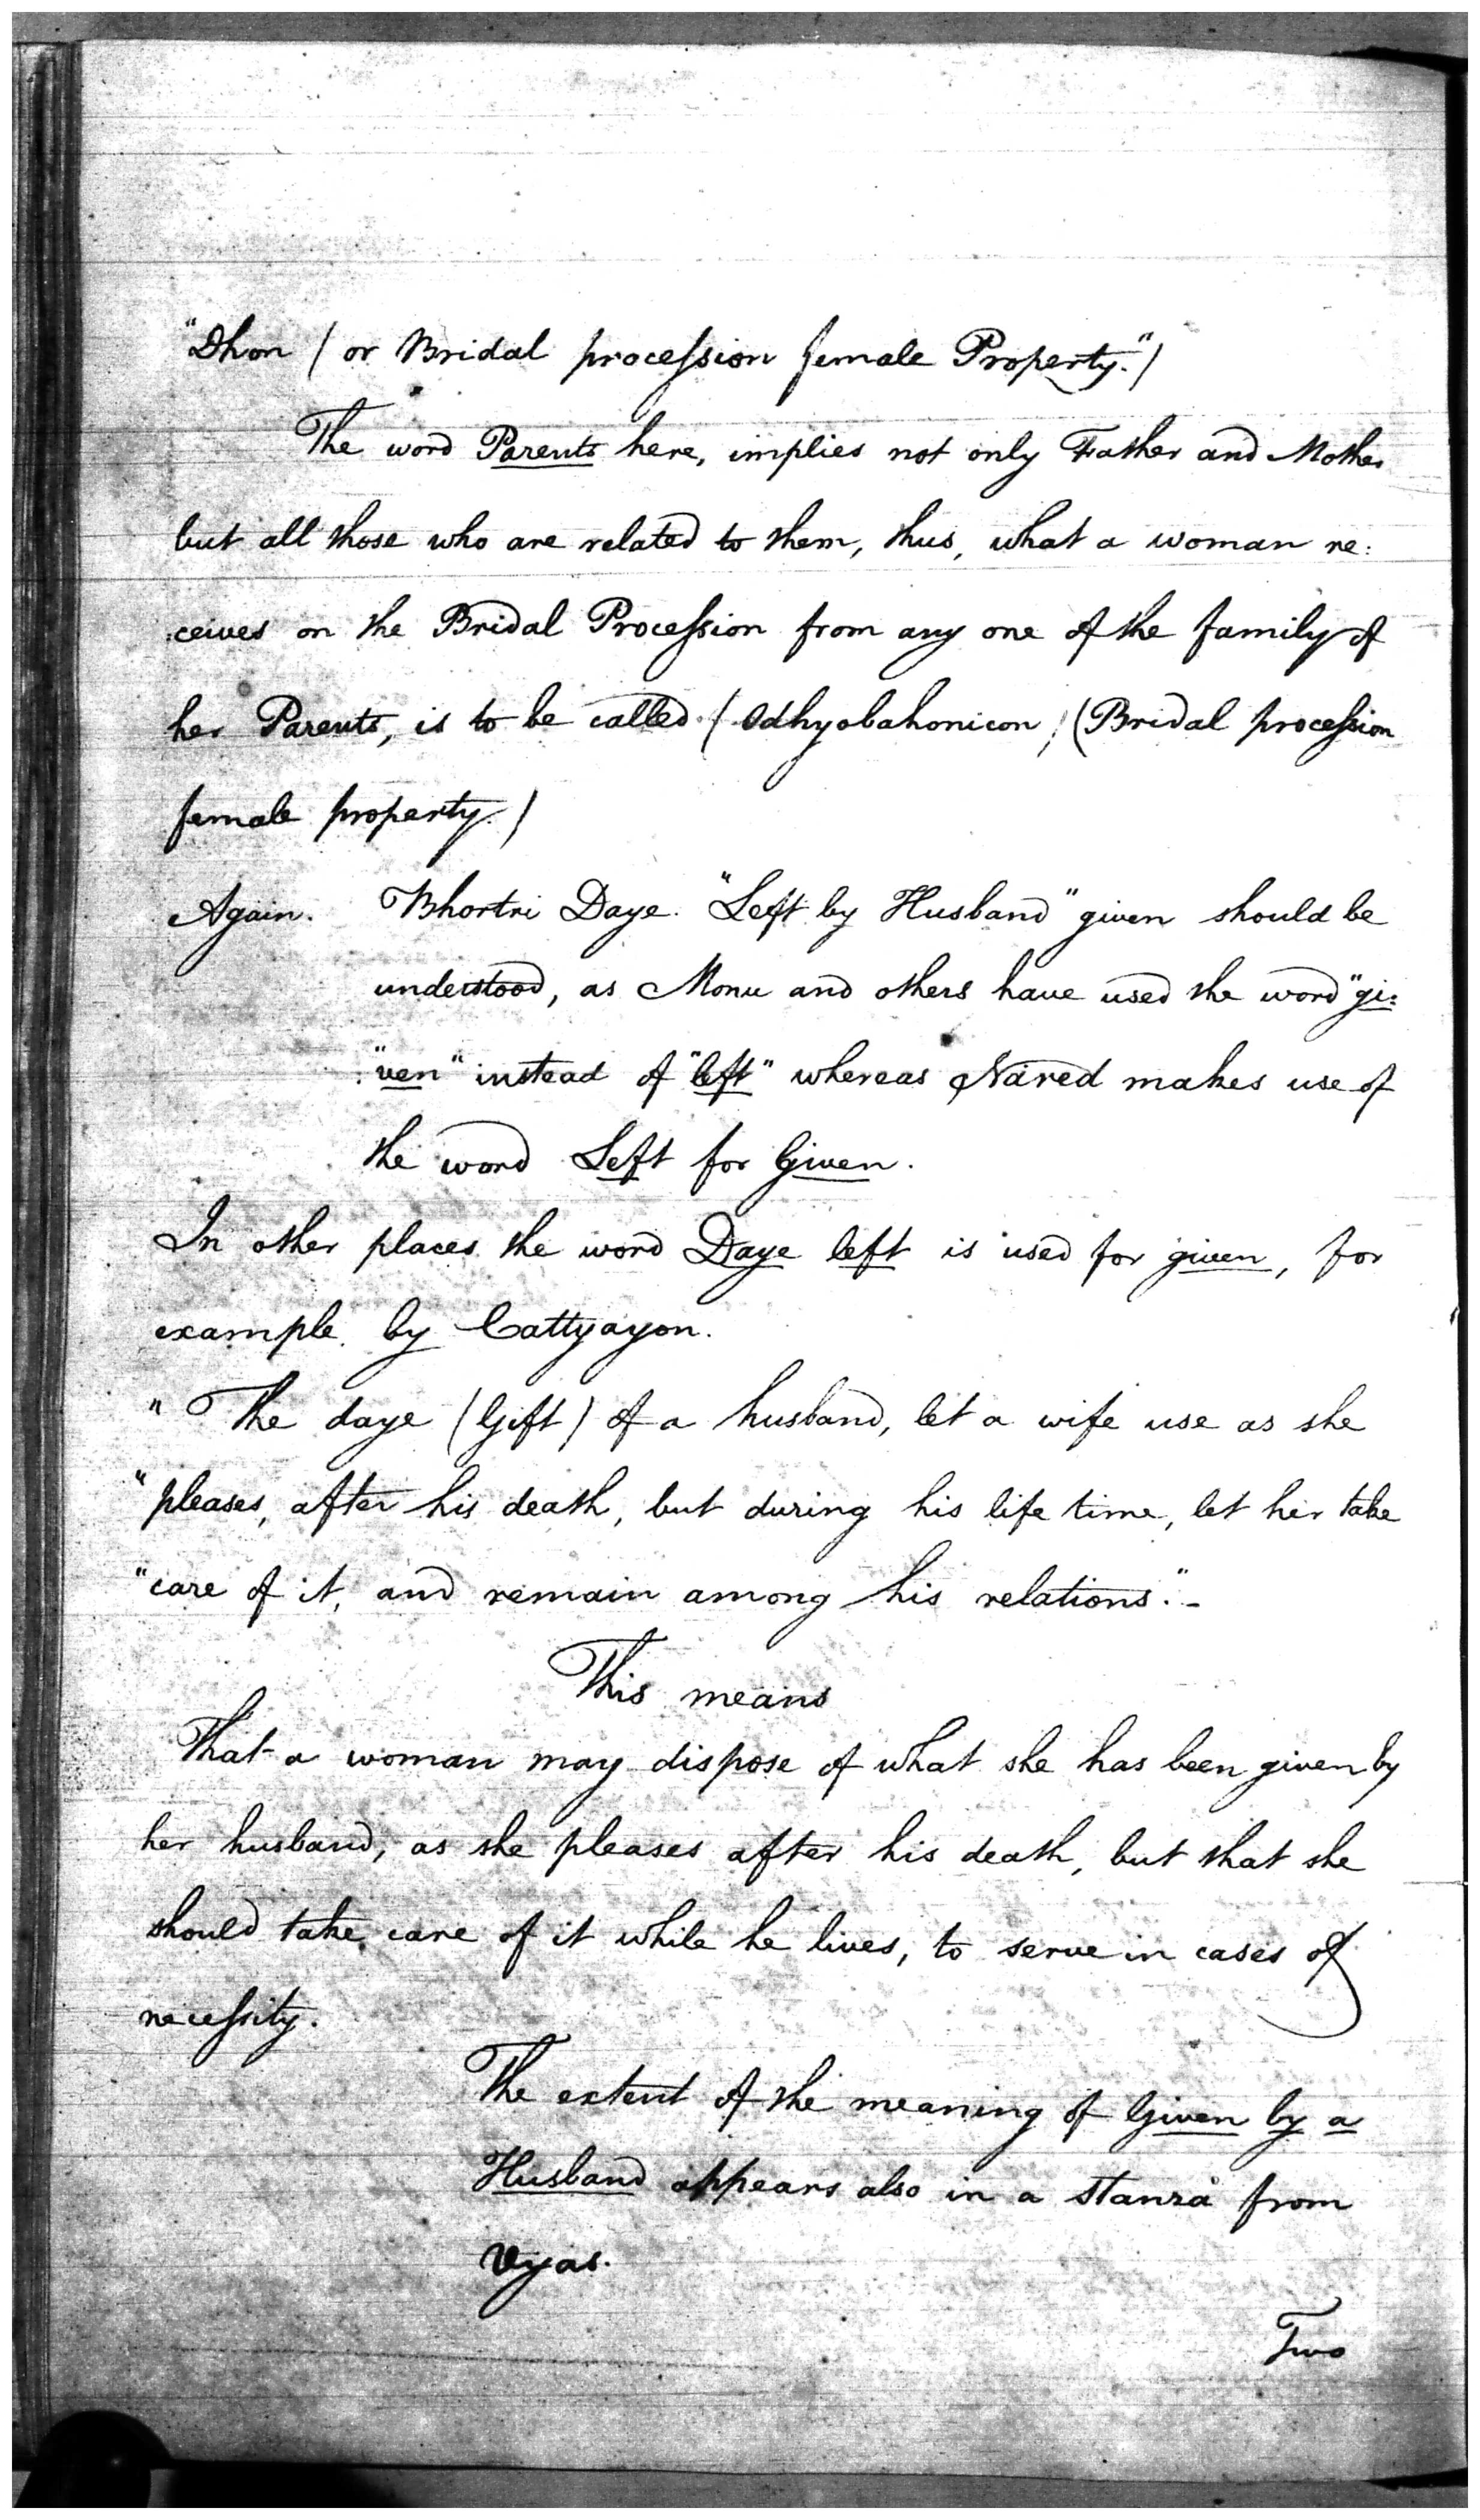 "Dhon (or Bridal procession female Property.")
The word Parents here, implies not only Father and Mother
but all those who are related to them, thus, what a woman re:
:ceives on the Bridal Procession from any one of the family of
her Parents, is to be called (Odhyobahonicon,) (Bridal procession
female property.)
Again. Bhortri Daye. "Left by Husband" given should be
understood, as Monu and others have used the word "gi:
:"ven" instead of "left" whereas Nared makes use of
the word Left for Given.
In other places the word Daye left is used for given, for
example by Cattyayon.
" The daye (Gift) of a husband, let a wife use as she
"pleases, after his death, but during his life time, let her take
"care of it, and remain among his relations."-
This means
That a woman may dispose of what she has been given by
her husband, as she pleases after his death, but that she
should take care of it while he lives, to serve in cases of
necessity.
The extent of the meaning of Given by a
Husband appears also in a stanza from
Vyas.
Two